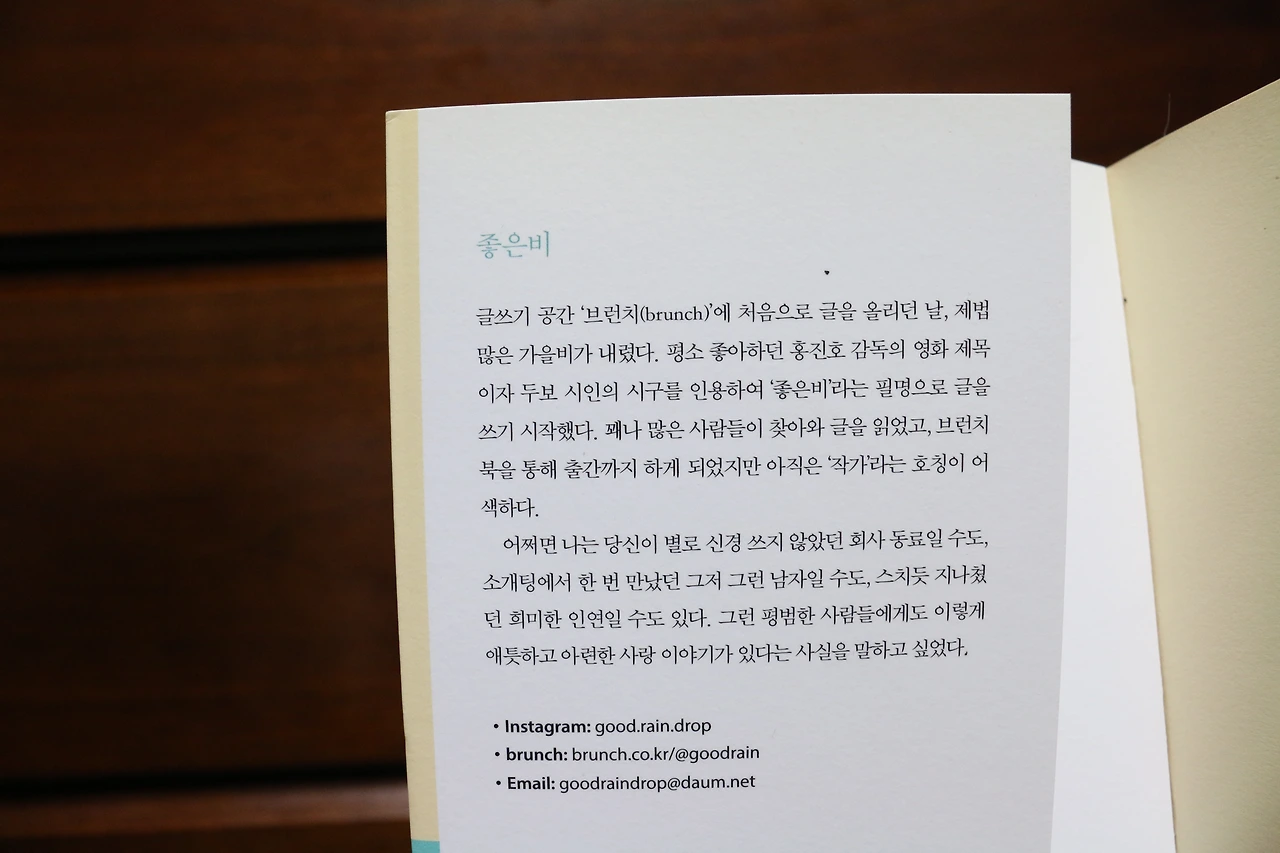 좋은비
글쓰기 공간 ‘브런치(brunch)’에 처음으로 글을 올리던 날, 제법
많은 가을비가 내렸다. 평소 좋아하던 홍진호 감독의 영화 제목
이자 두보 시인의 시구를 인용하여 ‘좋은비’라는 필명으로 글을
쓰기 시작했다. 꽤나 많은 사람들이 찾아와 글을 읽었고, 브런치
북을 통해 출간까지 하게 되었지만 아직은 ‘작가’라는 호칭이 어
색하다.
어쩌면 나는 당신이 별로 신경 쓰지 않았던 회사 동료일 수도,
소개팅에서 한 번 만났던 그저 그런 남자일 수도, 스치듯 지나쳤
던 희미한 인연일 수도 있다. 그런 평범한 사람들에게도 이렇게
애틋하고 아련한 사랑 이야기가 있다는 사실을 말하고 싶었다.
• Instagram: good.rain.drop
• brunch: brunch.co.kr/@goodrain
• Email: goodraindrop@daum.net